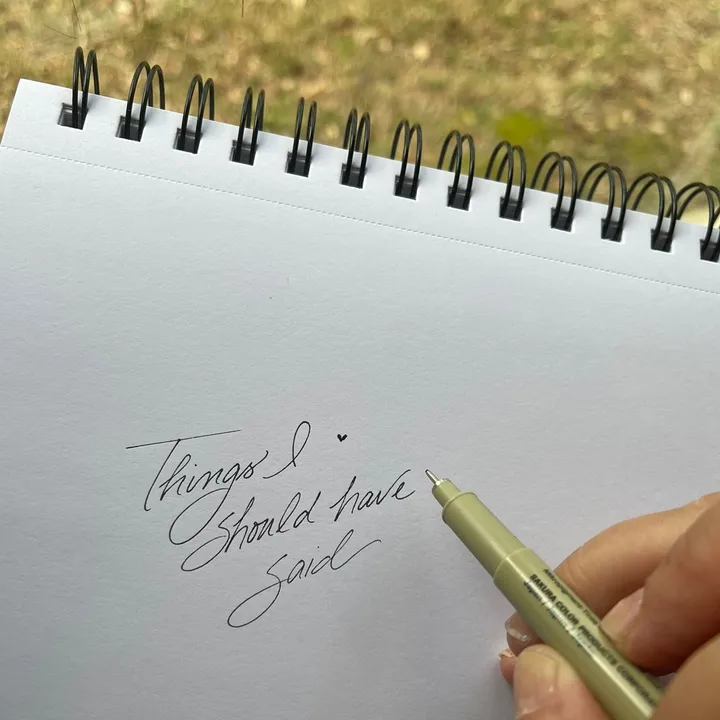 Things I
should have
said
SAKURA COLOR PRODUCTS CORPORAT